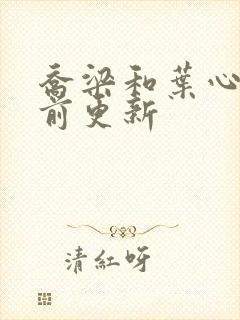 喬梁和葉心
前更新
清紅呀